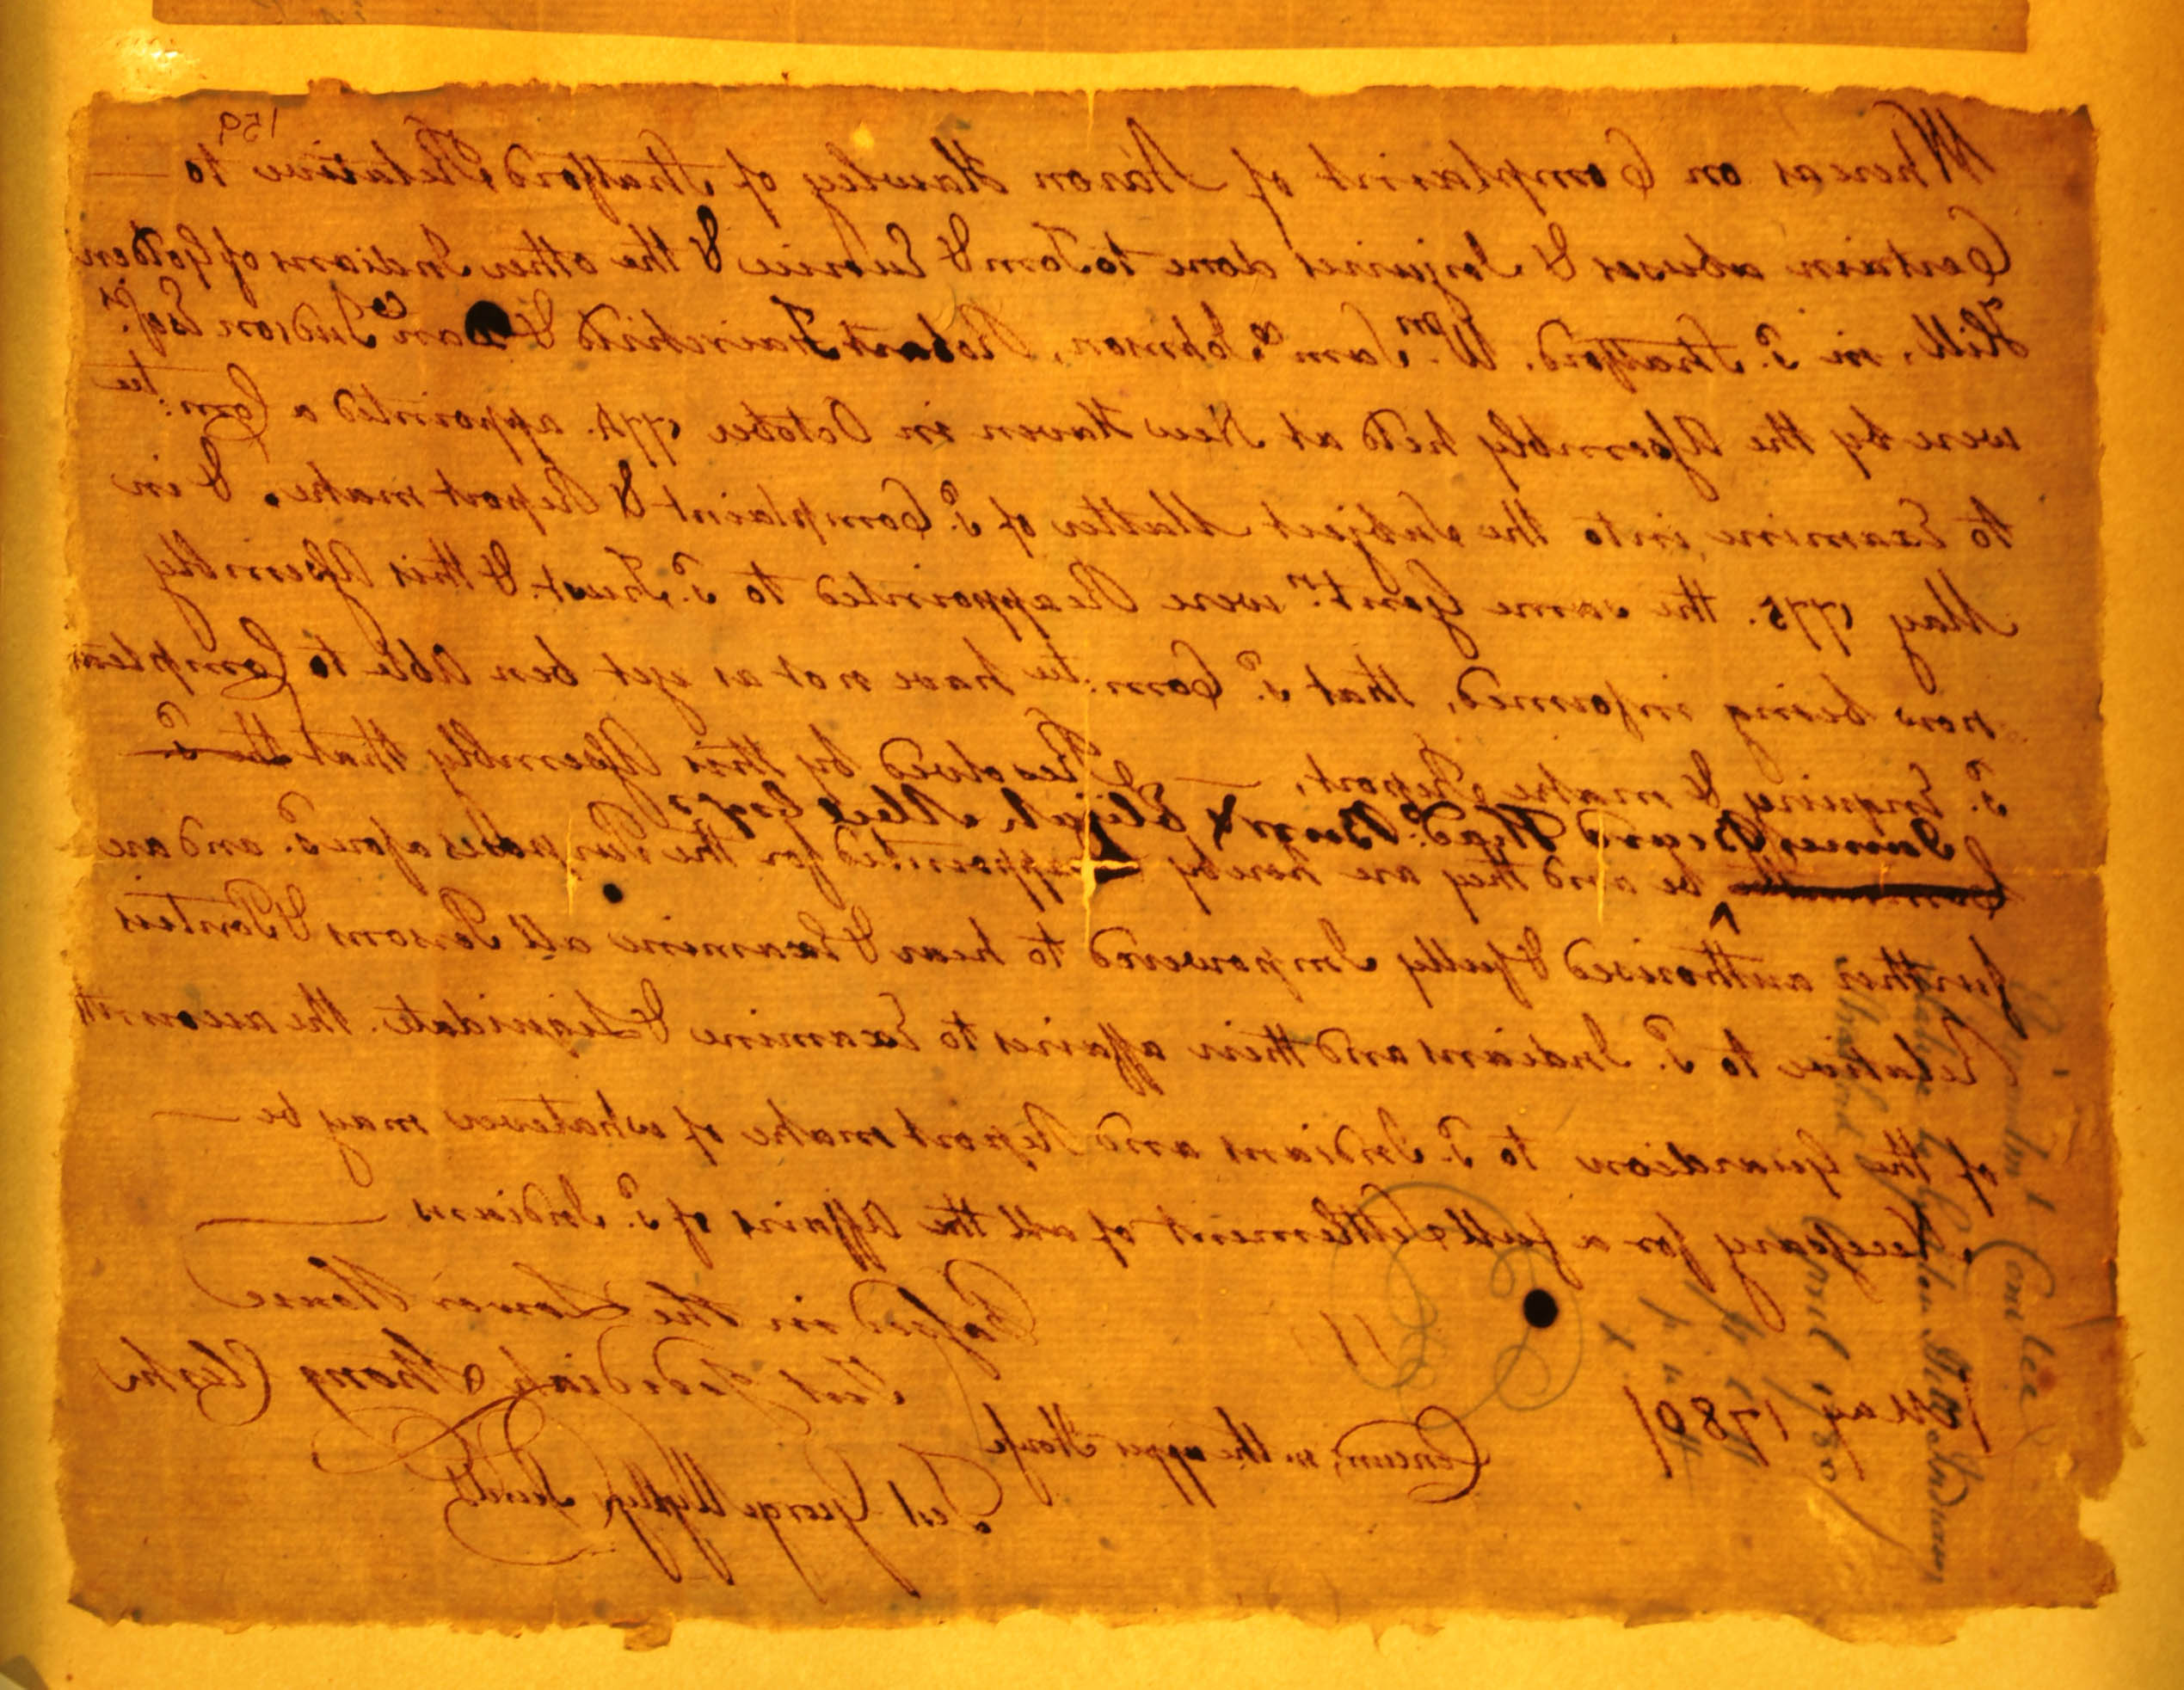 159
Whereas on Complaint of Aaron Hawley of Stratford Relative to
Certain abuses & Injuries done to Tom & Eunice & the other Indians of Golden
Hill, in Sd. Stratford, Wm. Saml. Johnson, Robart Fairchild & Danl. Judson Esqrs.
were by the Assembly held at New Haven in October 1774. appointed a Comtee
to Examine into the Subject Matter of Sd. Complaint & Report make, & in
May 1775. the same Gentn. were Reappointed to Sd. Trust & this Assembly
now being informed, that Sd. Comtee have not as yet ben able to Compleat
Sd. Enquiry & make Report, Resolved by this Assembly that the Sd.
James Thad. Burr & Elijah Abel Esqrs
be and they are hereby appointed for the Purposes aforesd. and are
further authorised & fully Impowered to hear & Examine all Persons & Parties
Relative to Sd. Indians and their affairs to Examine & Liquidate the accounts
of the Guardien to Sd. Indians and Report make of whatever may be
Necessary for a full Settlement of all the Affairs of Sd. Indians
Passed in the Lower House
Test Jedidiah Strong Clerk
Concurrd, in the upper House
Test George Wyllys Secrett
May 1780
Comtee
Golden Hill Indians
Stratford
April 1780